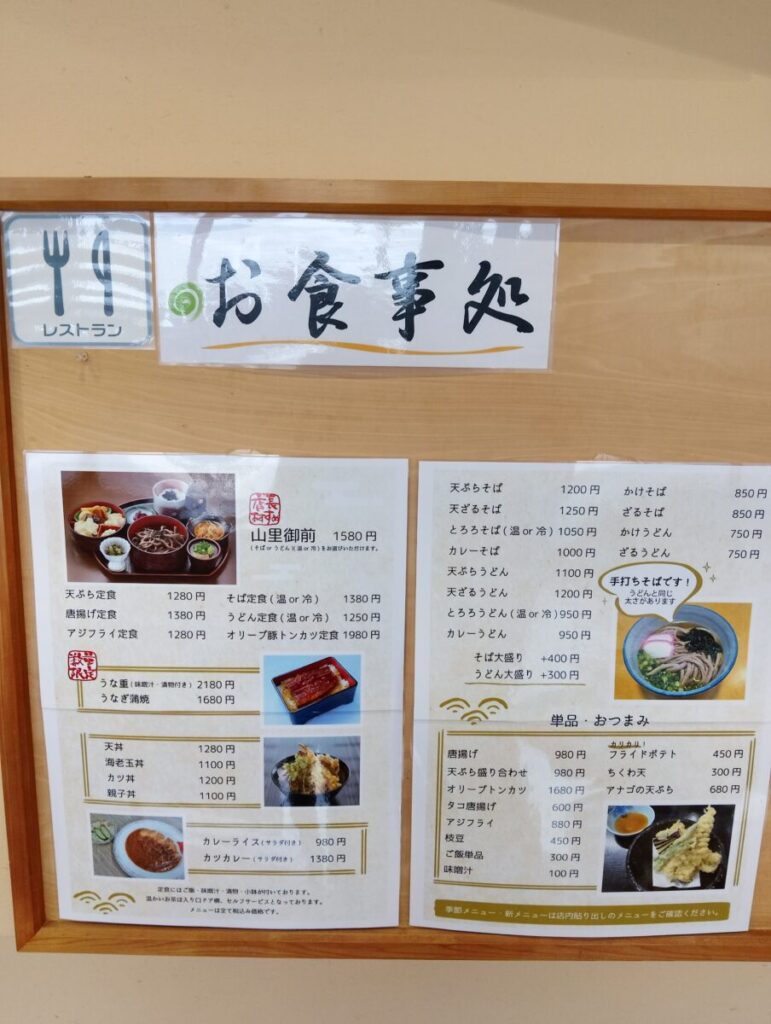 レストラン
お食事処
店長
おすすめ
山里御前 1580円
(そば or うどん)(温 or 冷)をお選びいただけます。
天ぷら定食 1280円
唐揚げ定食 1380円
アジフライ定食 1280円
そば定食(温 or 冷) 1380円
うどん定食(温 or 冷) 1250円
オリーブ豚トンカツ定食 1980円
うな重(味噌汁・漬物付き) 2180円
うなぎ蒲焼 1680円
天丼 1280円
海老玉丼 1100円
カツ丼 1200円
親子丼 1100円
カレーライス(サラダ付き) 980円
カツカレー(サラダ付き) 1380円
定食にはご飯・味噌汁・漬物・小鉢が付いております。
温かいお茶は入り口ドア横、セルフサービスとなっております。
メニューは全て税込み価格です。
天ぷらそば 1200円
天ざるそば 1250円
とろろそば(温 or 冷) 1050円
カレーそば 1000円
天ぷらうどん 1100円
天ざるうどん 1200円
とろろうどん(温 or 冷) 950円
カレーうどん 950円
そば大盛り +400円
うどん大盛り +300円
かけそば 850円
ざるそば 850円
かけうどん 750円
ざるうどん 750円
手打ちそばです！
うどんと同じ
太さがあります
単品・おつまみ
唐揚げ 980円
天ぷら盛り合わせ 980円
オリーブトンカツ 1680円
タコ唐揚げ 600円
アジフライ 880円
枝豆 450円
ご飯単品 300円
味噌汁 100円
カリカリ！
フライドポテト 450円
ちくわ天 300円
アナゴの天ぷら 680円
季節メニュー・新メニューは店内貼り出しのメニューをご確認ください。